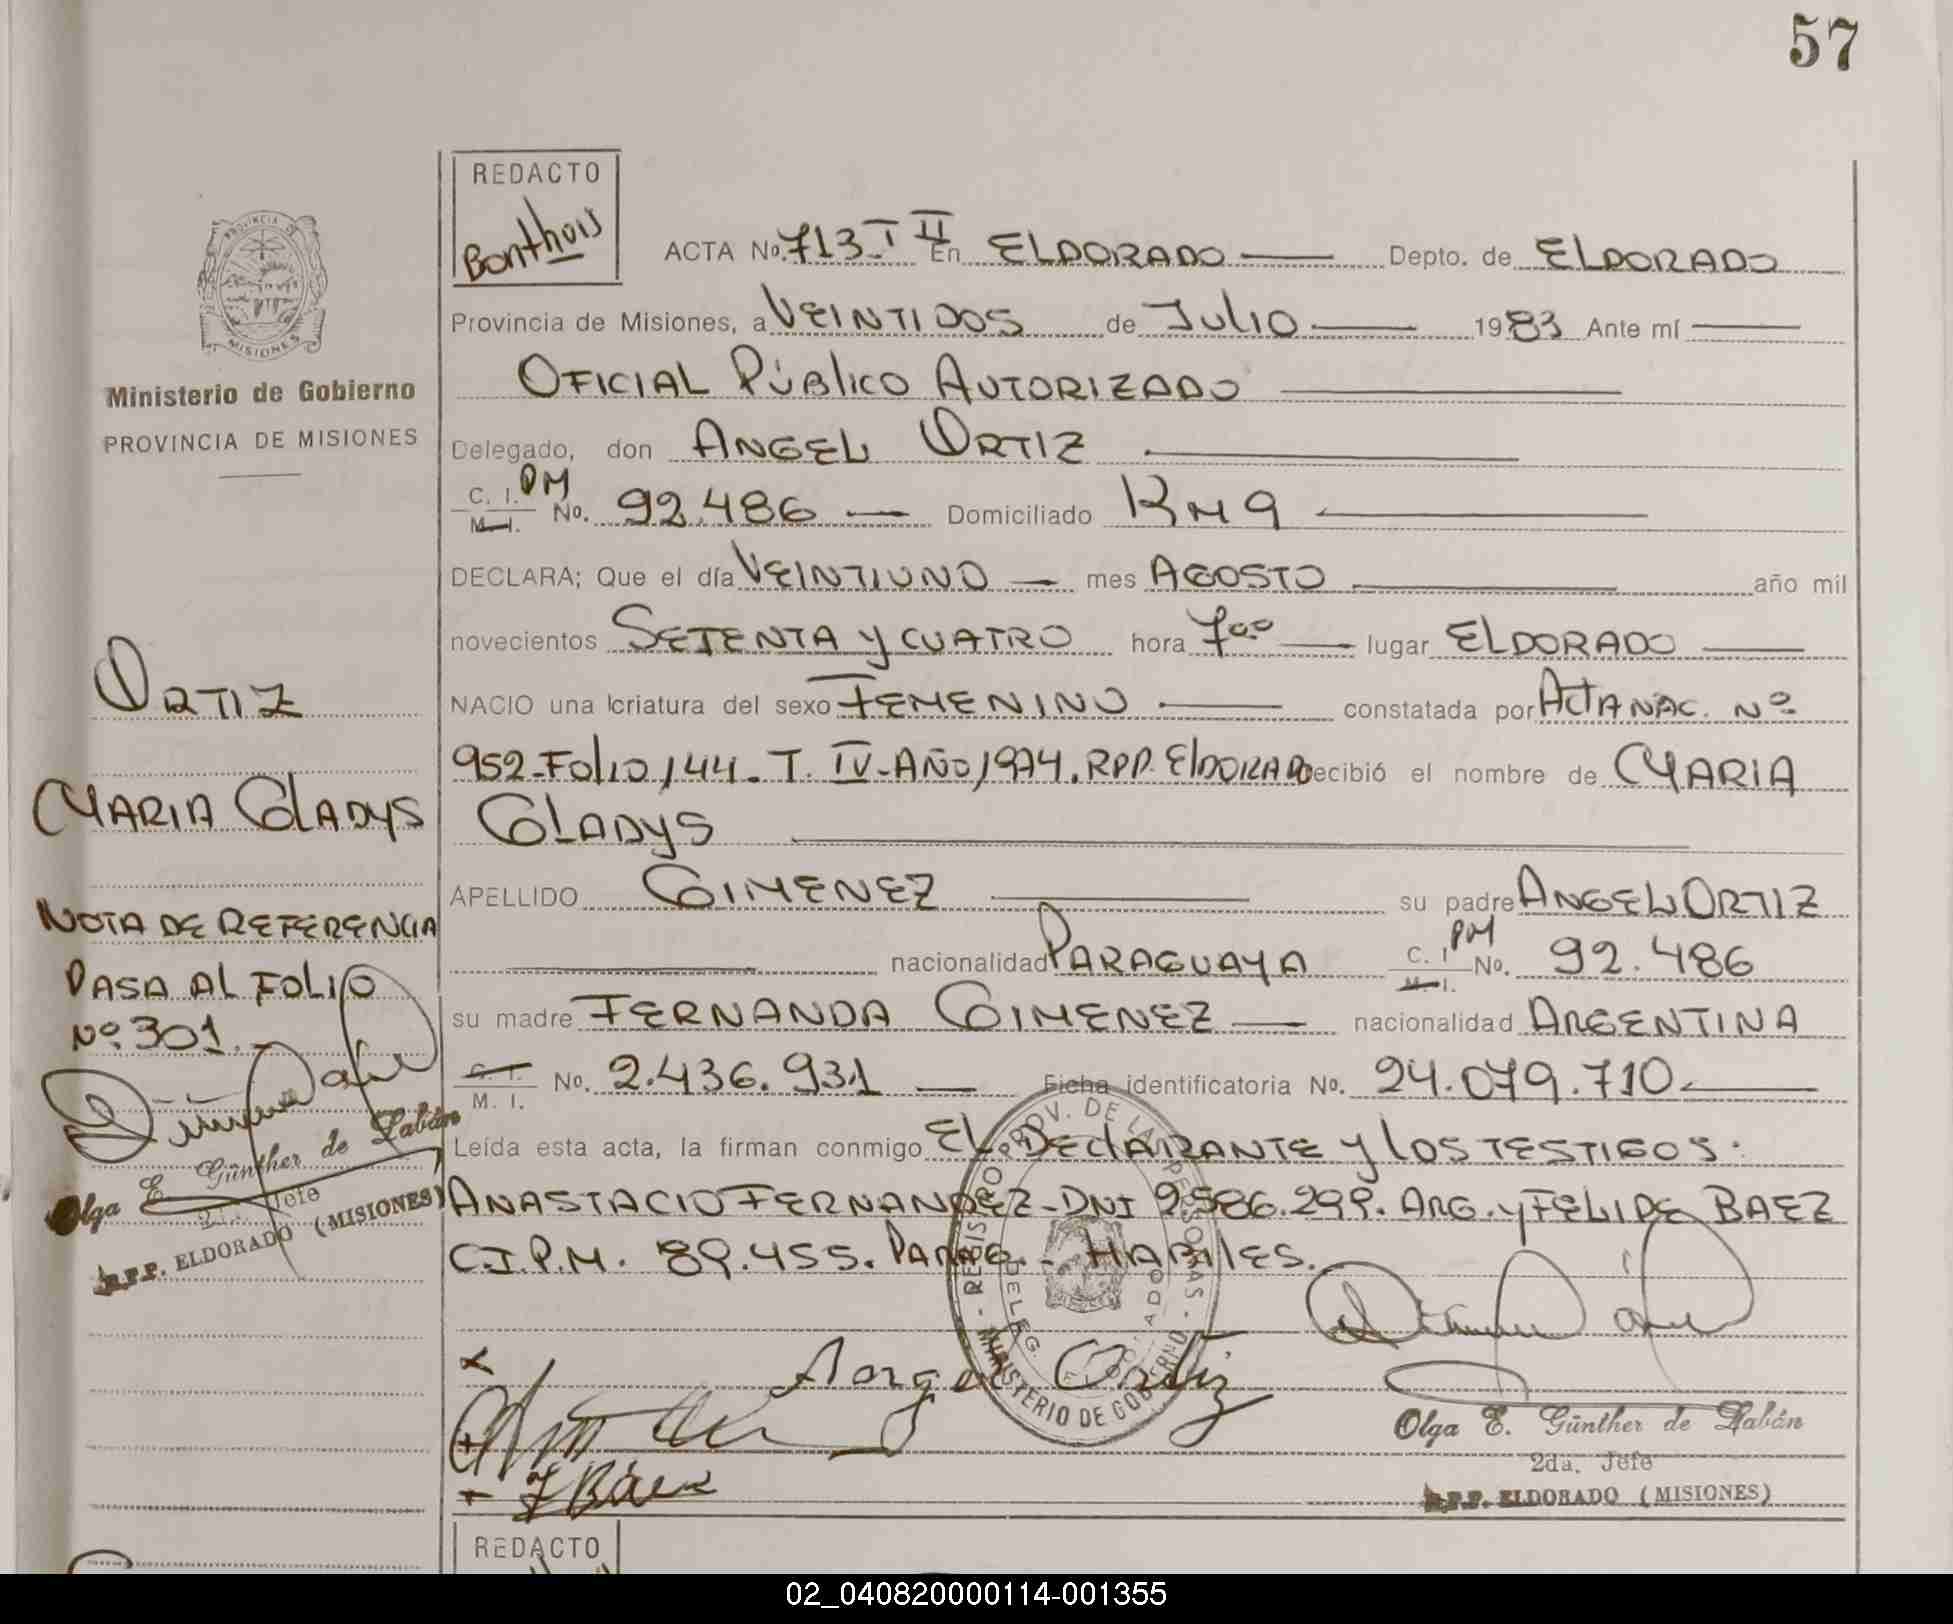 57
REDACTO
Bonthois
ACTA No. 713 T II En ELDORADO Depto. de ELDORADO
Provincia de Misiones, a VEINTIDOS de JULIO 1983 Ante mí
OFICIAL PÚBLICO AUTORIZADO
Delegado, don ANGEL ORTIZ
C. I. PM
M. I. No. 92.486 Domiciliado KM 9
DECLARA; Que el día VEINTIUNO mes AGOSTO año mil
novecientos SETENTA Y CUATRO hora 7 00 lugar ELDORADO
NACIO una criatura del sexo FEMENINO constatada por ACTA NAC. Nº
952-FOLIO 144. T. IV-AÑO 1974. RPP. ELDORADO recibió el nombre de MARIA
GLADYS
APELLIDO GIMENEZ su padre ANGEL ORTIZ
nacionalidad PARAGUAYA C. I. PM M. I. No. 92.486
su madre FERNANDA GIMENEZ nacionalidad ARGENTINA
C. I.
M. I. No. 2.436.931 Ficha identificatoria No. 24.079.710
Leída esta acta, la firman conmigo EL DECLARANTE Y LOS TESTIGOS:
ANASTACIO FERNANDEZ-DNI 9.586.299. ARG. Y FELIPE BAEZ
C.I.P.M. 89.455. PARAG. - HABILES.
Angel Ortiz
F Báez
Olga E. Günther de Labán
2da. Jefe
R.P.P. ELDORADO (MISIONES)
REGISTRO PROV. DE LAS PERSONAS
DELEG. ELDORADO
MINISTERIO DE GOBIERNO
PROVINCIA DE
MISIONES
Ministerio de Gobierno
PROVINCIA DE MISIONES
ORTIZ
MARIA GLADYS
NOTA DE REFERENCIA
PASA AL FOLIO
Nº 301.-
Olga E. Günther de Labán
2da. Jefe
R.P.P. ELDORADO (MISIONES)
REDACTO
02_040820000114-001355